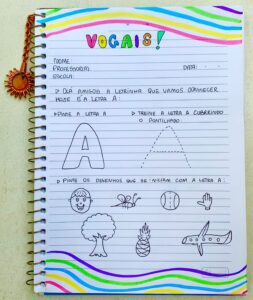 VOGAIS!
NOME:
PROFESSOR(A): DATA: - -
ESCOLA:
> OLÁ AMIGOS A LETRINHA QUE VAMOS CONHECER
HOJE É A LETRA A:
> PINTE A LETRA A
> TREINE A LETRA A COBRINDO
O PONTILHADO
A A
> PINTE OS DESENHOS QUE SE INICIAM COM A LETRA A: